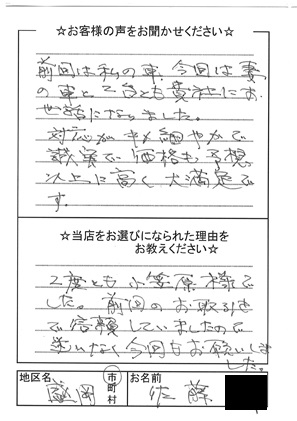 ☆お客様の声をお聞かせください☆
前回は私の車、今回は妻
の車と2台とも貴社にお
世話になりました。
対応がキメ細やかで
誠実で価格も予想
以上に高く大満足で
す
☆当店をお選びになられた理由を
お教えください☆
2度とも小笠原様で
した。前回のお取引き
で信頼していましたので
迷いなく今回もお願いしま
した。
地区名 盛岡 市町村 お名前 佐藤